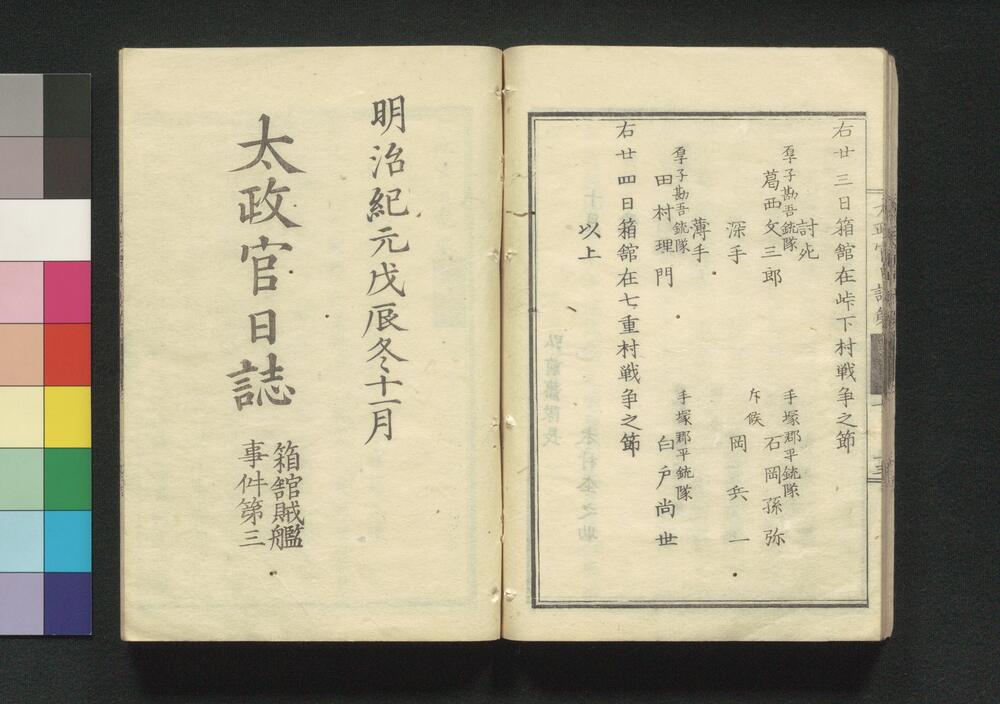 右廿三日箱館在峠下村戦争之節
討死
覃子勘吾銃隊
葛西文三郎
手塚郡平銃隊
石岡孫弥
深手
斥候
岡兵一
薄手
覃子勘吾銃隊
田村理門
手塚郡平銃隊
白戸尚世
右廿四日箱館在七重村戦争之節
以上
明治紀元戊辰冬十一月
太政官日誌
箱館賊艦
事件第三